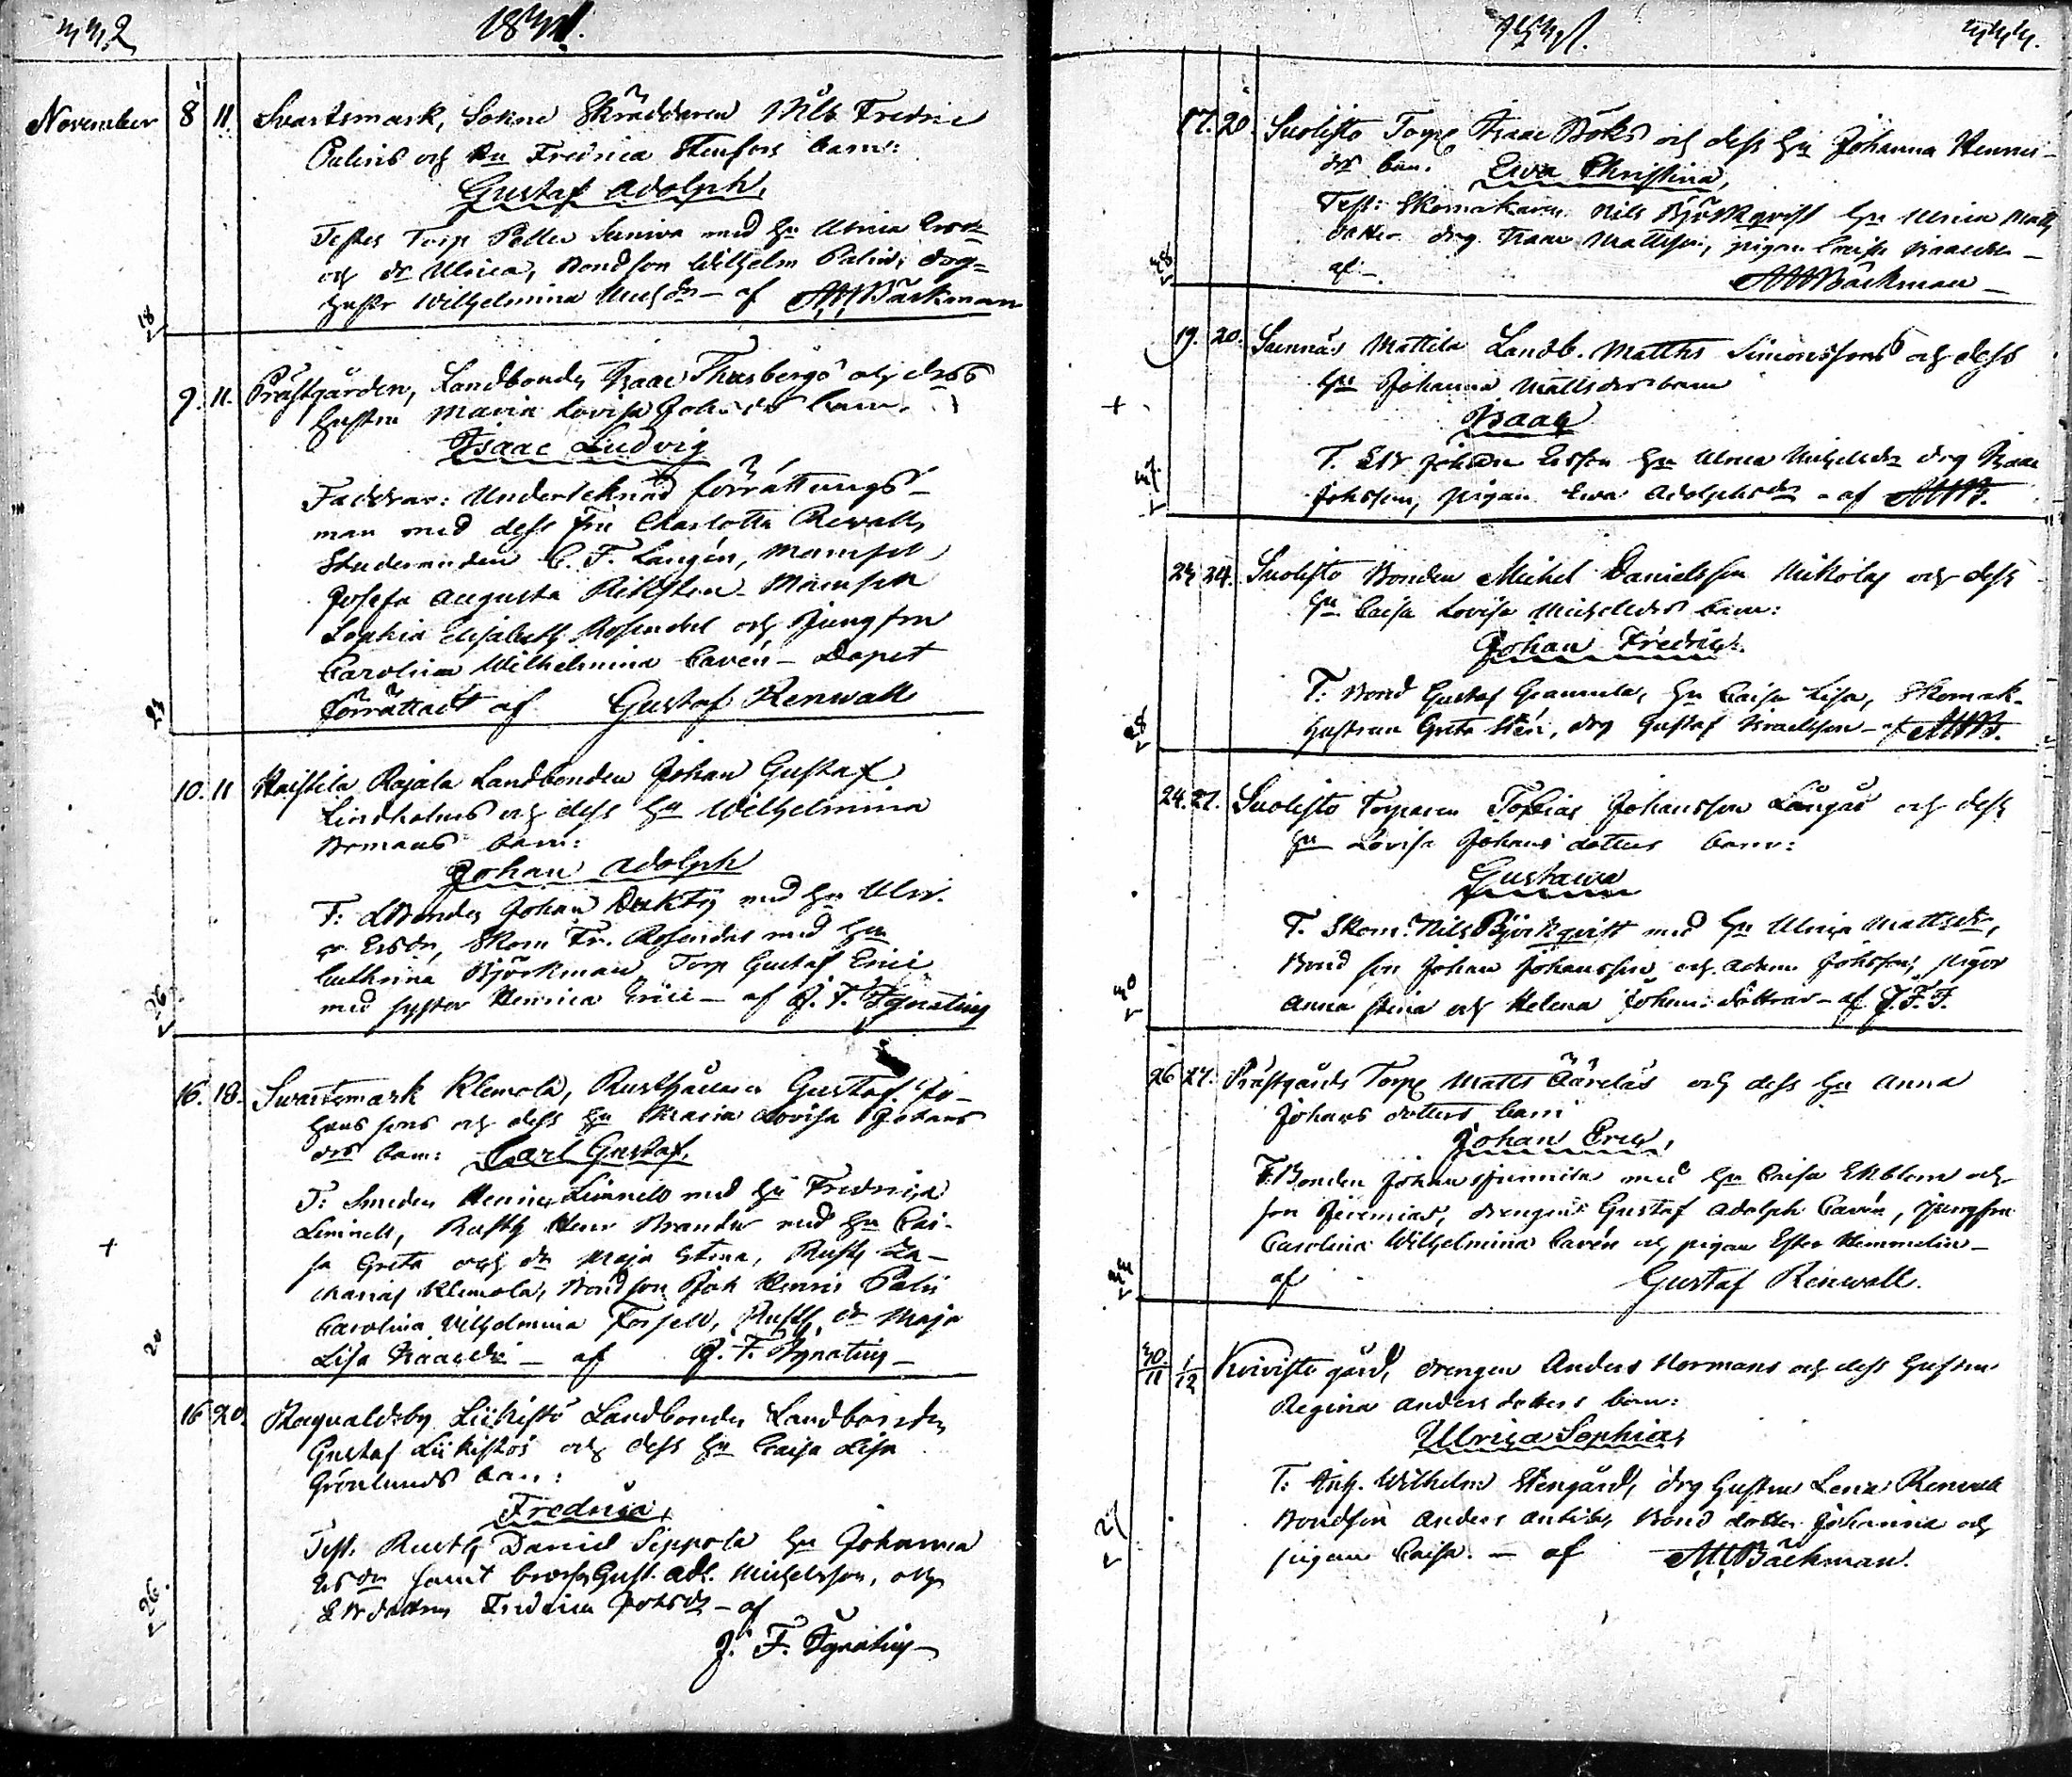 1841.
November 8 11. Svartsmark, Sokne Skräddaren Nils Fredric
Palins och hu Fredrica Stenfors barn:
Gustaf Adolph,
Testes Torp Petter Suniva med hu Ulrica Ersdr
och dr Ulrica, Bondson Wilhelm Palin, drg=
hustr Wilhelmina Michdr – af AWBäckman
18
9. 11. Prästgården, Landbonden Isaac Thusbergs och dess
hustru Maria Lovisa Johsdrs barn.
Isaac Ludvig
Faddrar: Undertecknad förrättnings-
man med dess fru Charlotta Revall,
Studeranden C. F. Langén, Mamsell
Josefa Augusta Mamsell
Sophia Elisabeth Rosendal och Jungfru
Carolina Wilhelmina Cavén – Dopet
förrättadt af Gustaf Renwall
10. 11 Haistila Rajala Landbonden Johan Gustaf
Lindholms och dess hu Wilhelmina
barn:
Johan Adolph
T: LBonden Johan med hu Ulri-
ca Ersdr, Skom Fr. Rosendal med hu
Cathrina Björkman, Torp Gustaf Erici
med syster Henrica Erici – af J. F. Ignatius
26
16. 18. Svartsmark Klemola, Rusthållaren Gustaf Jo-
hanssons och dess hu Maria Lovisa Johans
drs barn: Carl Gustaf,
T: Smeden Henric Linnell med hu Fredrica
Linnell, Rusth Henr Brander med hu Cai-
sa Greta och dr Maja Stina, Rusth Za-
charias Klemola, Bondson Joh Henric Palin
Carolina Vilhelmina Forsell, Rusth dr Maja
Lisa Isaacsdr – af J. F. Ignatius –
+
20
16 20. Ragvaldsby Liikistö Landbonden Landbonden
Gustaf Liikistös och dess hu Caisa Lisa
Grönlunds barn:
Fredrica,
Test. Rusth Daniel Seppola hu Johanna
Ersdr samt Gust. Adl. Michelsson, och
Fredrica Johsdr – af
J. F. Ignatius –
26.
1841.
17. 20. Suolisto Torp Isaac Böks och dess hu Johanna Henrics-
drs barn. Ewa Christina,
Test: Skomakaren Nils Björkqvist hu Ulrica Matts
dotter drg Isaac Mattsson, pigan Caisa Isaacsdr –
af – AWBäckman –
19. 20. Sunnäs Mattila Landb. Matths Simonssons och dess
hu Johanna Mattsdrs barn
+
Isaac
T. Johan Ersson hu Ulrica Michelsdr drg Isaac
Johsson, pigan Ewa Adolphsdr – af AWB.
23 24. Suolisto Bonden Michel Danielsson Nikolas och dess
hu Caisa Lovisa Michelsdrs barn:
Johan Fredric.
T: Bond Gustaf Grannila, hu Caisa Lisa, Skomak.
hustrun Greta Stén, drg Gustaf Israelsson – af AWB.
24. 27. Suolisto Torparen Tobias Johansson Långås och dess
hu Lovisa Johans dotters barn:
Gustawa
T. Skom: Nils Björkqvist med hu Ulrica Mattsdr,
Bond son Johan Johansson och Adam Johsson, pigor
Anna Stina och Helena Johans döttrar – af J. F. I.
30
26 27. Prästgårds Torp Matts Ääreläs och dess hu Anna
Johans dotters barn
Johan Eric,
T. Bonden Johan med hu Caisa Ekblom och
son Jeremias, drengen Gustaf Adolph Cavén, jungfru
Carolina Wilhelmina Cavén och pigan Ester Hemmelin –
af Gustaf Renwall.
30/11 1/12 Koivisto gård, drengen Anders Normans och dess hustru
Regina Anders dotters barn:
Ulrica Sophia,
T: Inh. Wilhelm Stengård, drg hustru Lena Renvall
Bondson Anders Antila, Bond dotter Johanna och
pigan Caisa. – af AWBäckman.
27